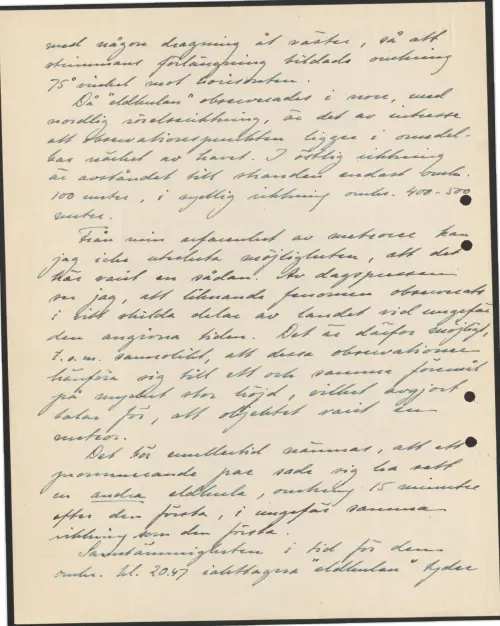 med någon dragning åt väster, så att
strimmans förlängning bildade omkring
75° vinkel mot horisonten.
Då "eldkulan" observerades i norr, med
nordlig rörelseriktning, är det av intresse
att observationspunkten ligger i omedel-
bar närhet av havet. I östlig riktning
är avståndet till stranden endast omkr.
100 meter, i nordlig riktning omkr. 400-500
meter.
Från min erfarenhet av meteorer kan
jag icke utesluta möjligheten, att det
här varit en sådan. Av dagspressen
ser jag, att liknande fenomen observerats
i vitt skilda delar av landet vid ungefär
den angivna tiden. Det är därför möjligt,
t.o.m. sannolikt, att dessa observationer
hänföra sig till ett och samma föremål
på mycket stor höjd, vilket avgjort
talar för, att objektet varit en
meteor.
Det bör emellertid nämnas, att ett
promenerande par sade sig ha sett
en andra eldkula, omkring 15 minuter
efter den första, i ungefär samma
riktning som den första.
Samstämmigheten i tid för den
omkr. kl. 20.47 iakttagna "eldkulan" tyder